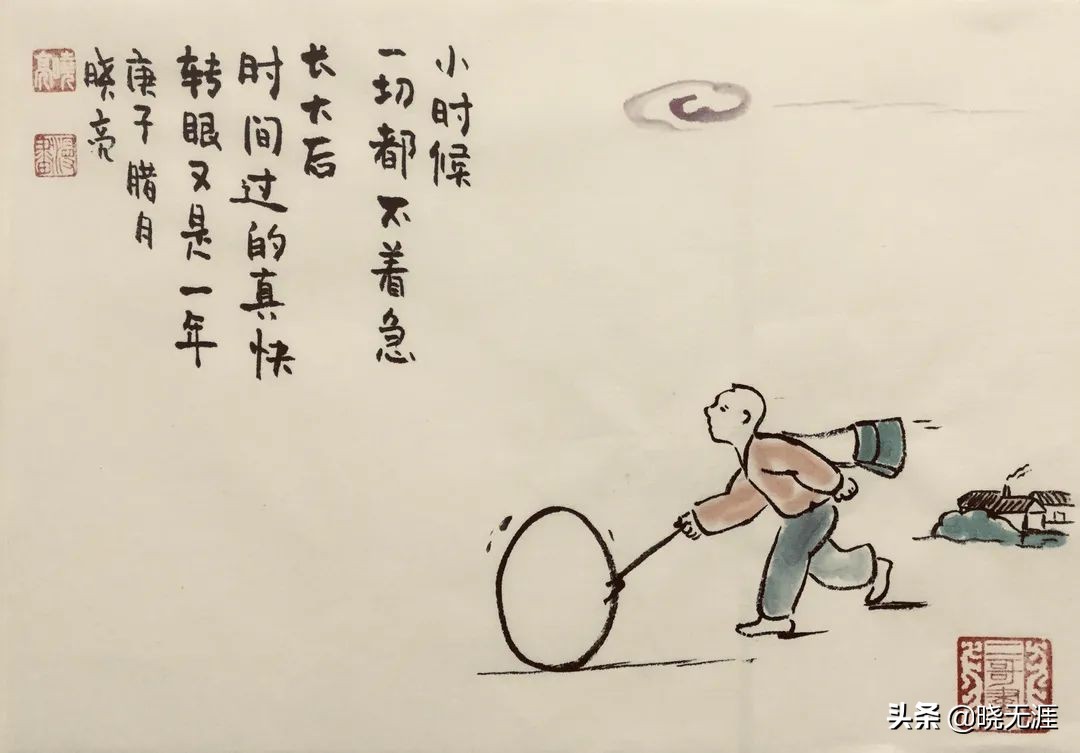 小时候
一切都不着急
长大后
时间过的真快
转眼又是一年
庚子腊月
晓亮
头条 @晓无涯